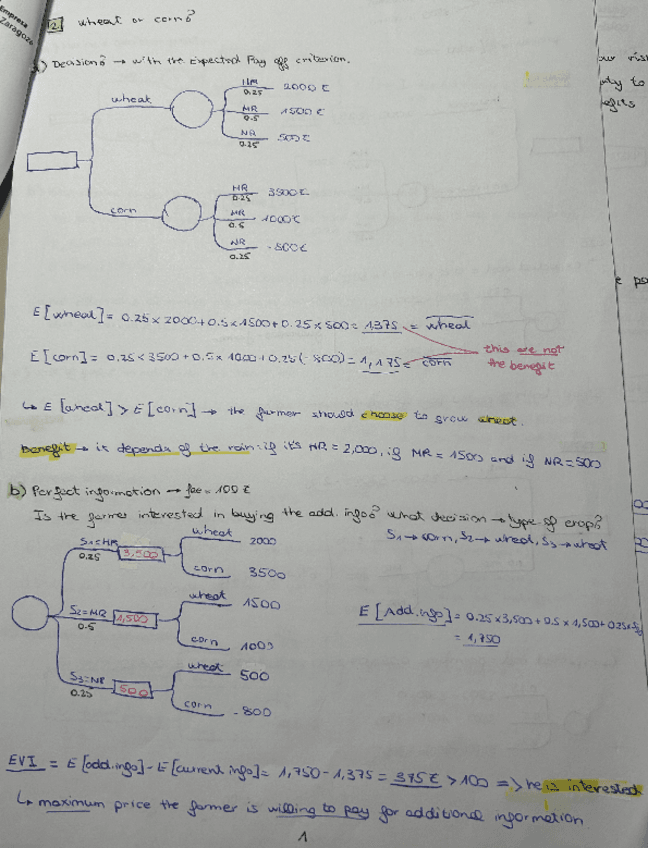 Empresa
Zaragoza
2. wheat or corn?
a) Decision? → with the Expected Pay off criterion.
wheat
HR 0.25 2000 €
MR 0.5 1500 €
NR 0.25 500 €
corn
HR 0.25 3500 €
MR 0.5 1000 €
NR 0.25 -800 €
E[wheat] = 0.25 x 2000 + 0.5 x 1500 + 0.25 x 500 = 1375 = wheat
E[corn] = 0.25 x 3500 + 0.5 x 1000 + 0.25(-800) = 1,175 = corn
this are not
the benefit
↳ E[wheat] > E[corn] → the farmer should choose to grow wheat.
benefit → it depends of the rain: if it's HR = 2,000, if MR = 1500 and if NR = 500
b) Perfect information → fee = 100 €
Is the farmer interested in buying the add. info? what decision → type of crop?
S1 → corn, S2 → wheat, S3 → wheat
S1 = HR 0.25 3,500
wheat 2000
corn 3500
S2 = MR 0.5 1,500
wheat 1500
corn 1000
S3 = NR 0.25 500
wheat 500
corn -800
E[Add. info] = 0.25 x 3,500 + 0.5 x 1,500 + 0.25 x
= 1,750
EVI = E[add. info] - E[current info] = 1,750 - 1,375 = 375 € > 100 => he is interested
↳ maximum price the farmer is willing to pay for additional information
1